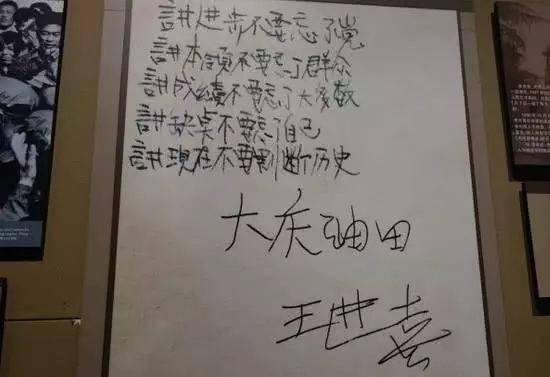 讲进步不要忘了党
讲本領不要忘了群众
讲成績不要忘了大多数
讲缺点不要忘了自己
讲現在不要割断历史
大庆油田
王进喜